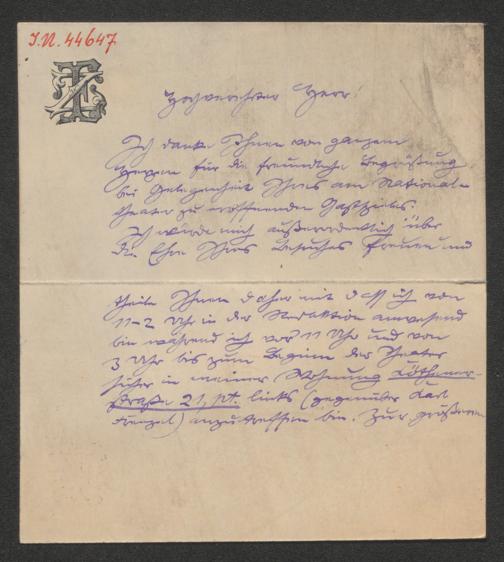 I.N. 44647
Hochverehrter Herr!
Ich danke Ihnen von ganzem
Herzen für die freundliche Begrüßung
bei Gelegenheit Ihres am National-
theater zu eröffnenden Gastspieles.
Ich würde mich außerordentlich über
die Ehre Ihres Besuches freuen und
theile Ihnen daher mit daß ich von
11–2 Uhr in der Redaktion anwesend
bin während ich vor 11 Uhr und von
3 Uhr bis zum Beginn der Theater
sicher in meiner Wohnung Köthener-
straße 21, pt. links (gegenüber Karl
Frenzel) anzutreffen bin. Zur größeren